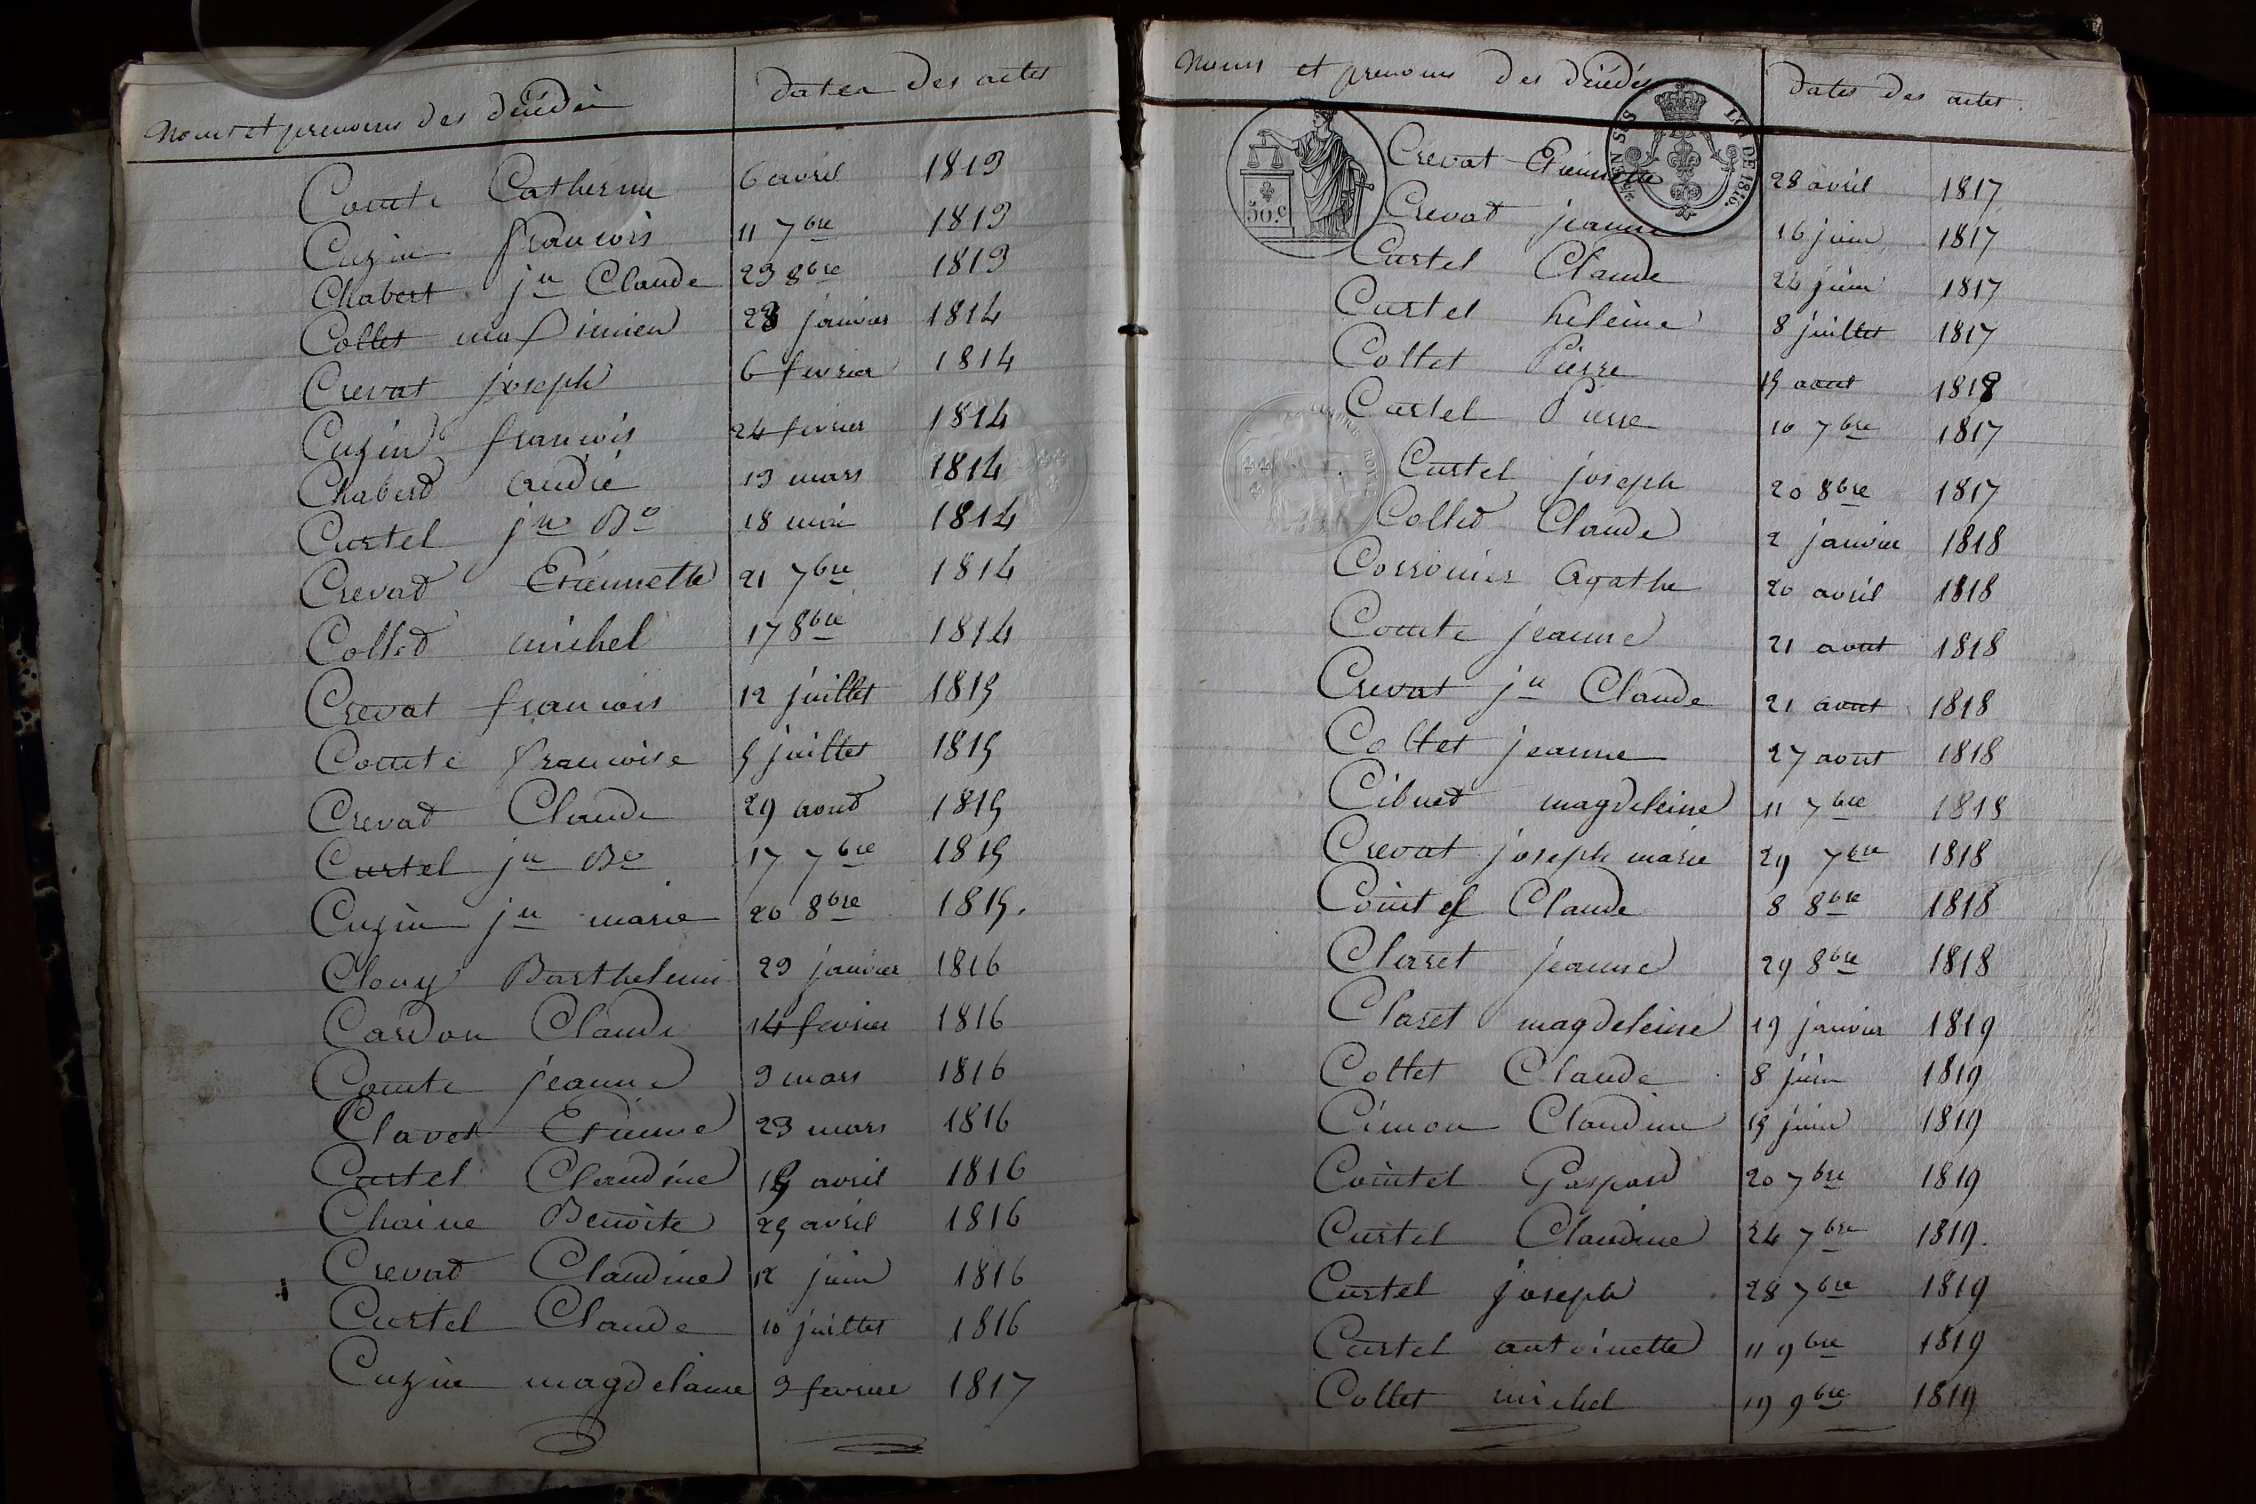 Noms et prenoms des décédés
Dates des actes
Comte Catherine 6 avril 1813
Cuzin françois 11 7bre 1813
Chabert jn Claude 23 8bre 1813
Collet maximien 28 janvier 1814
Crevat joseph 6 fevrier 1814
Cuzin françois 24 fevrier 1814
Chaberd André 13 mars 1814
Curtel jn Bte 18 mai 1814
Crevat Etiennette 21 7bre 1814
Collet michel 17 8bre 1814
Crevat françois 12 juillet 1815
Comte françoise 5 juillet 1815
Crevat Claude 29 aout 1815
Curtel jn Bte 17 7bre 1815
Cuzin jn marie 20 8bre 1815.
Clouy Barthelemi 23 janvier 1816
Cardon Claude 14 fevrier 1816
Comte jeanne 3 mars 1816
Clavet Etienne 23 mars 1816
Curtel Claudine 15 avril 1816
Chaine Benoite 25 avril 1816
Crevat Claudine 12 juin 1816
Curtel Claude 10 juillet 1816
Cuzin magdelaine 3 fevrier 1817
Noms et prenoms des décédés
Dates des actes.
50.c
LOI DE 1816.
Crevat Etiennette 28 avril 1817
Crevat jeanne 16 juin 1817
Curtel Claude 24 juin 1817
Curtel heleine 8 juillet 1817
Collet Pierre 15 aout 1817
Curtel Pierre 10 7bre 1817
Curtel joseph 20 8bre 1817
Collet Claude 2 janvier 1818
Corronier Agathe 20 avril 1818
Comte jeanne 21 aout 1818
Crevat jn Claude 21 aout 1818
Collet jeanne 27 aout 1818
Cibuet magdeleine 11 7bre 1818
Crevat joseph marie 29 7bre 1818
Cointet Claude 8 8bre 1818
Claret jeanne 29 8bre 1818
Claret magdeleine 19 janvier 1819
Collet Claude 8 juin 1819
Cimon Claudine 15 juin 1819
Cointet Gaspard 20 7bre 1819
Curtel Claudine 24 7bre 1819.
Curtel joseph 28 7bre 1819
Curtel antoinette 11 9bre 1819
Collet michel 19 9bre 1819